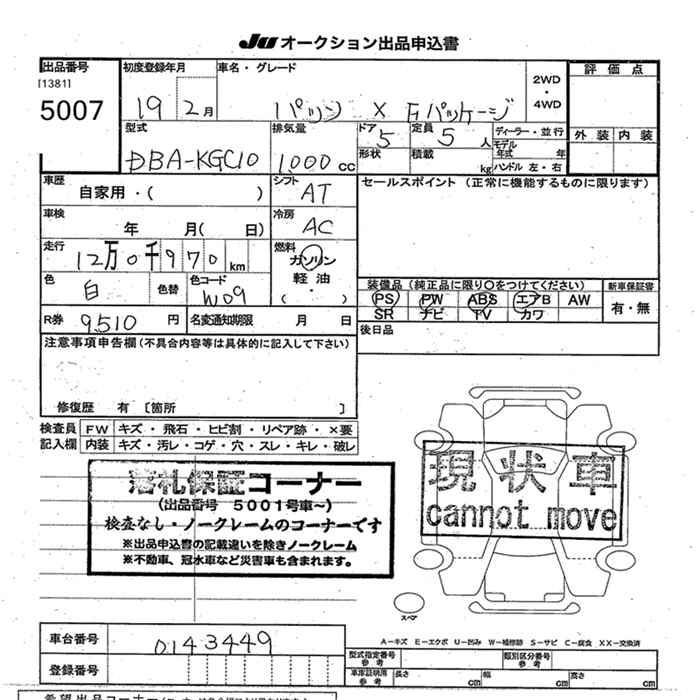 JU オークション出品申込書
出品番号 初度登録年月 車名・グレード 2WD ・ 4WD 評価点
[1381]
5007 19 2月 パッソ X Fパッケージ
型式 排気量 ドア 5 定員 5人 ディーラー・並行 外装 内装
DBA-KGC10 1,000cc 形状 積載 kg モデル年式 年
ハンドル 左・右
車歴 自家用・( ) シフト AT セールスポイント (正常に機能するものに限ります)
車検 年 月( 日) 冷房 AC
走行 12万0千970km 燃料 ガソリン
軽油
( ・ )
色 白 色替 色コード W09 装備品 (純正品に限り○をつけてください) 新車保証書
PS PW ABS エアB AW 有・無
SR ナビ TV カワ
R券 9510円 名変通知期限 月 日 後日品
注意事項申告欄(不具合内容等は具体的に記入して下さい)
修復歴 有 [箇所 ]
検査員 FW キズ・飛石・ヒビ割・リペア跡・×要
記入欄 内装 キズ・汚レ・コゲ・穴・スレ・キレ・破レ
落札保証コーナー
(出品番号 5001号車~)
検査なし・ノークレームのコーナーです
※出品申込書の記載違いを除きノークレーム
※不動車、冠水車など災害車も含まれます。
現状車
cannot move
スペア
A-キズ E-エクボ U-凹み W-補修跡 S-サビ C-腐食 XX-交換済
車台番号 0143449 型式指定番号 参考 類別区分番号 参考
登録番号 車庫証明用 参考 長さ cm 幅 cm 高さ cm
希望出品コーナー